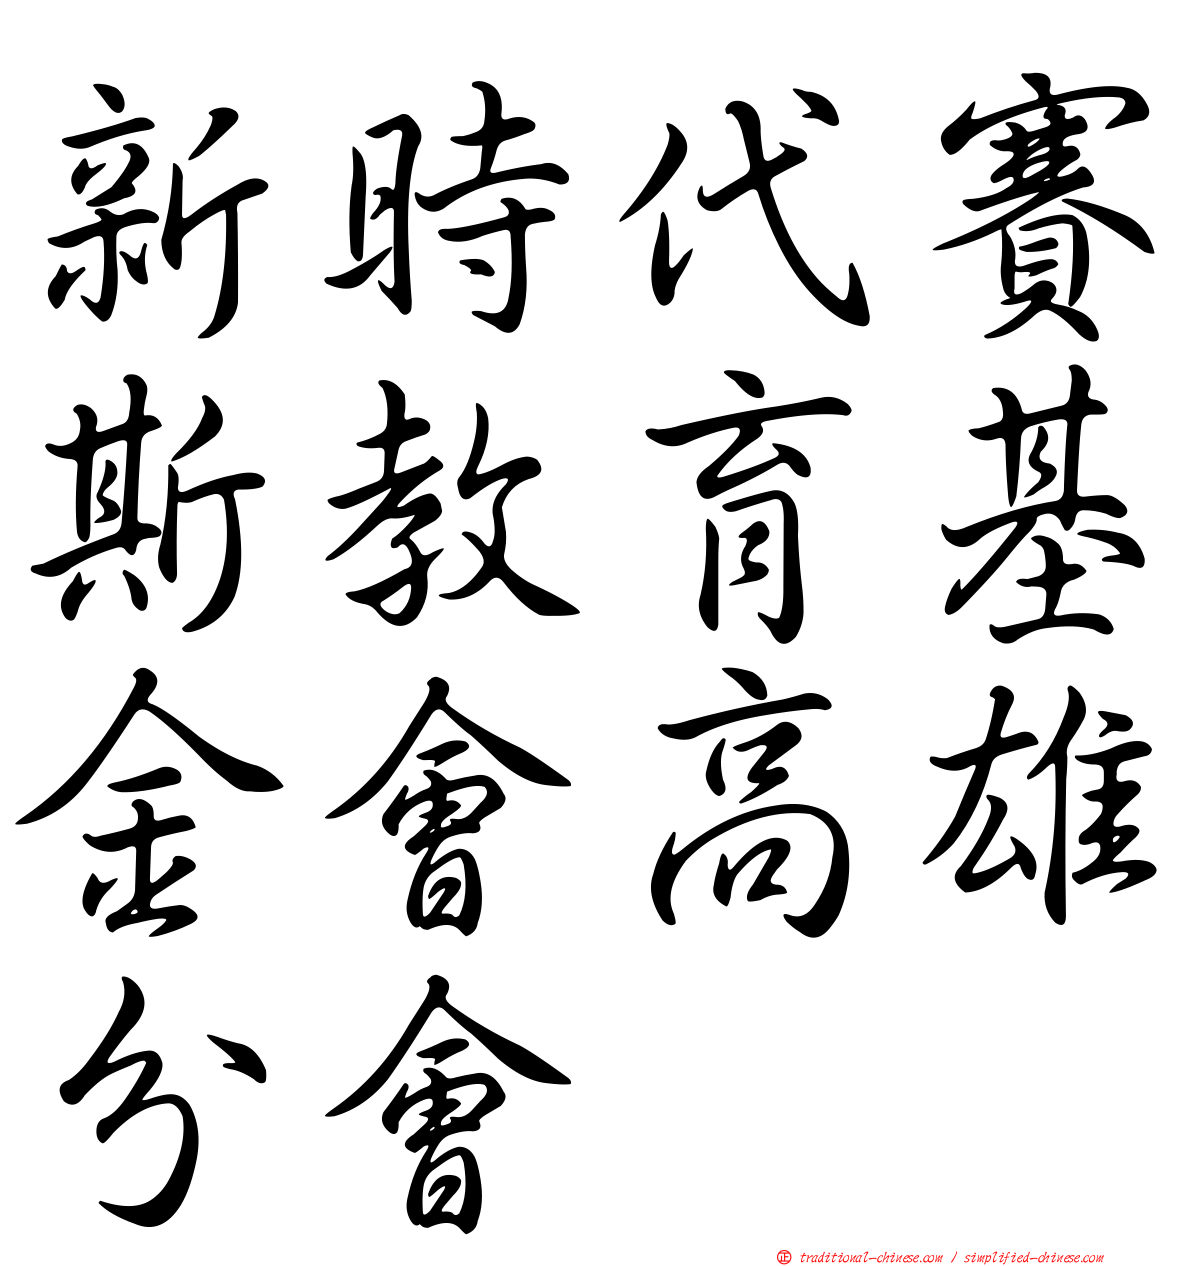 新時代賽
斯教育基
金會高雄
分會
正 traditional-chinese.com / simplified-chinese.com